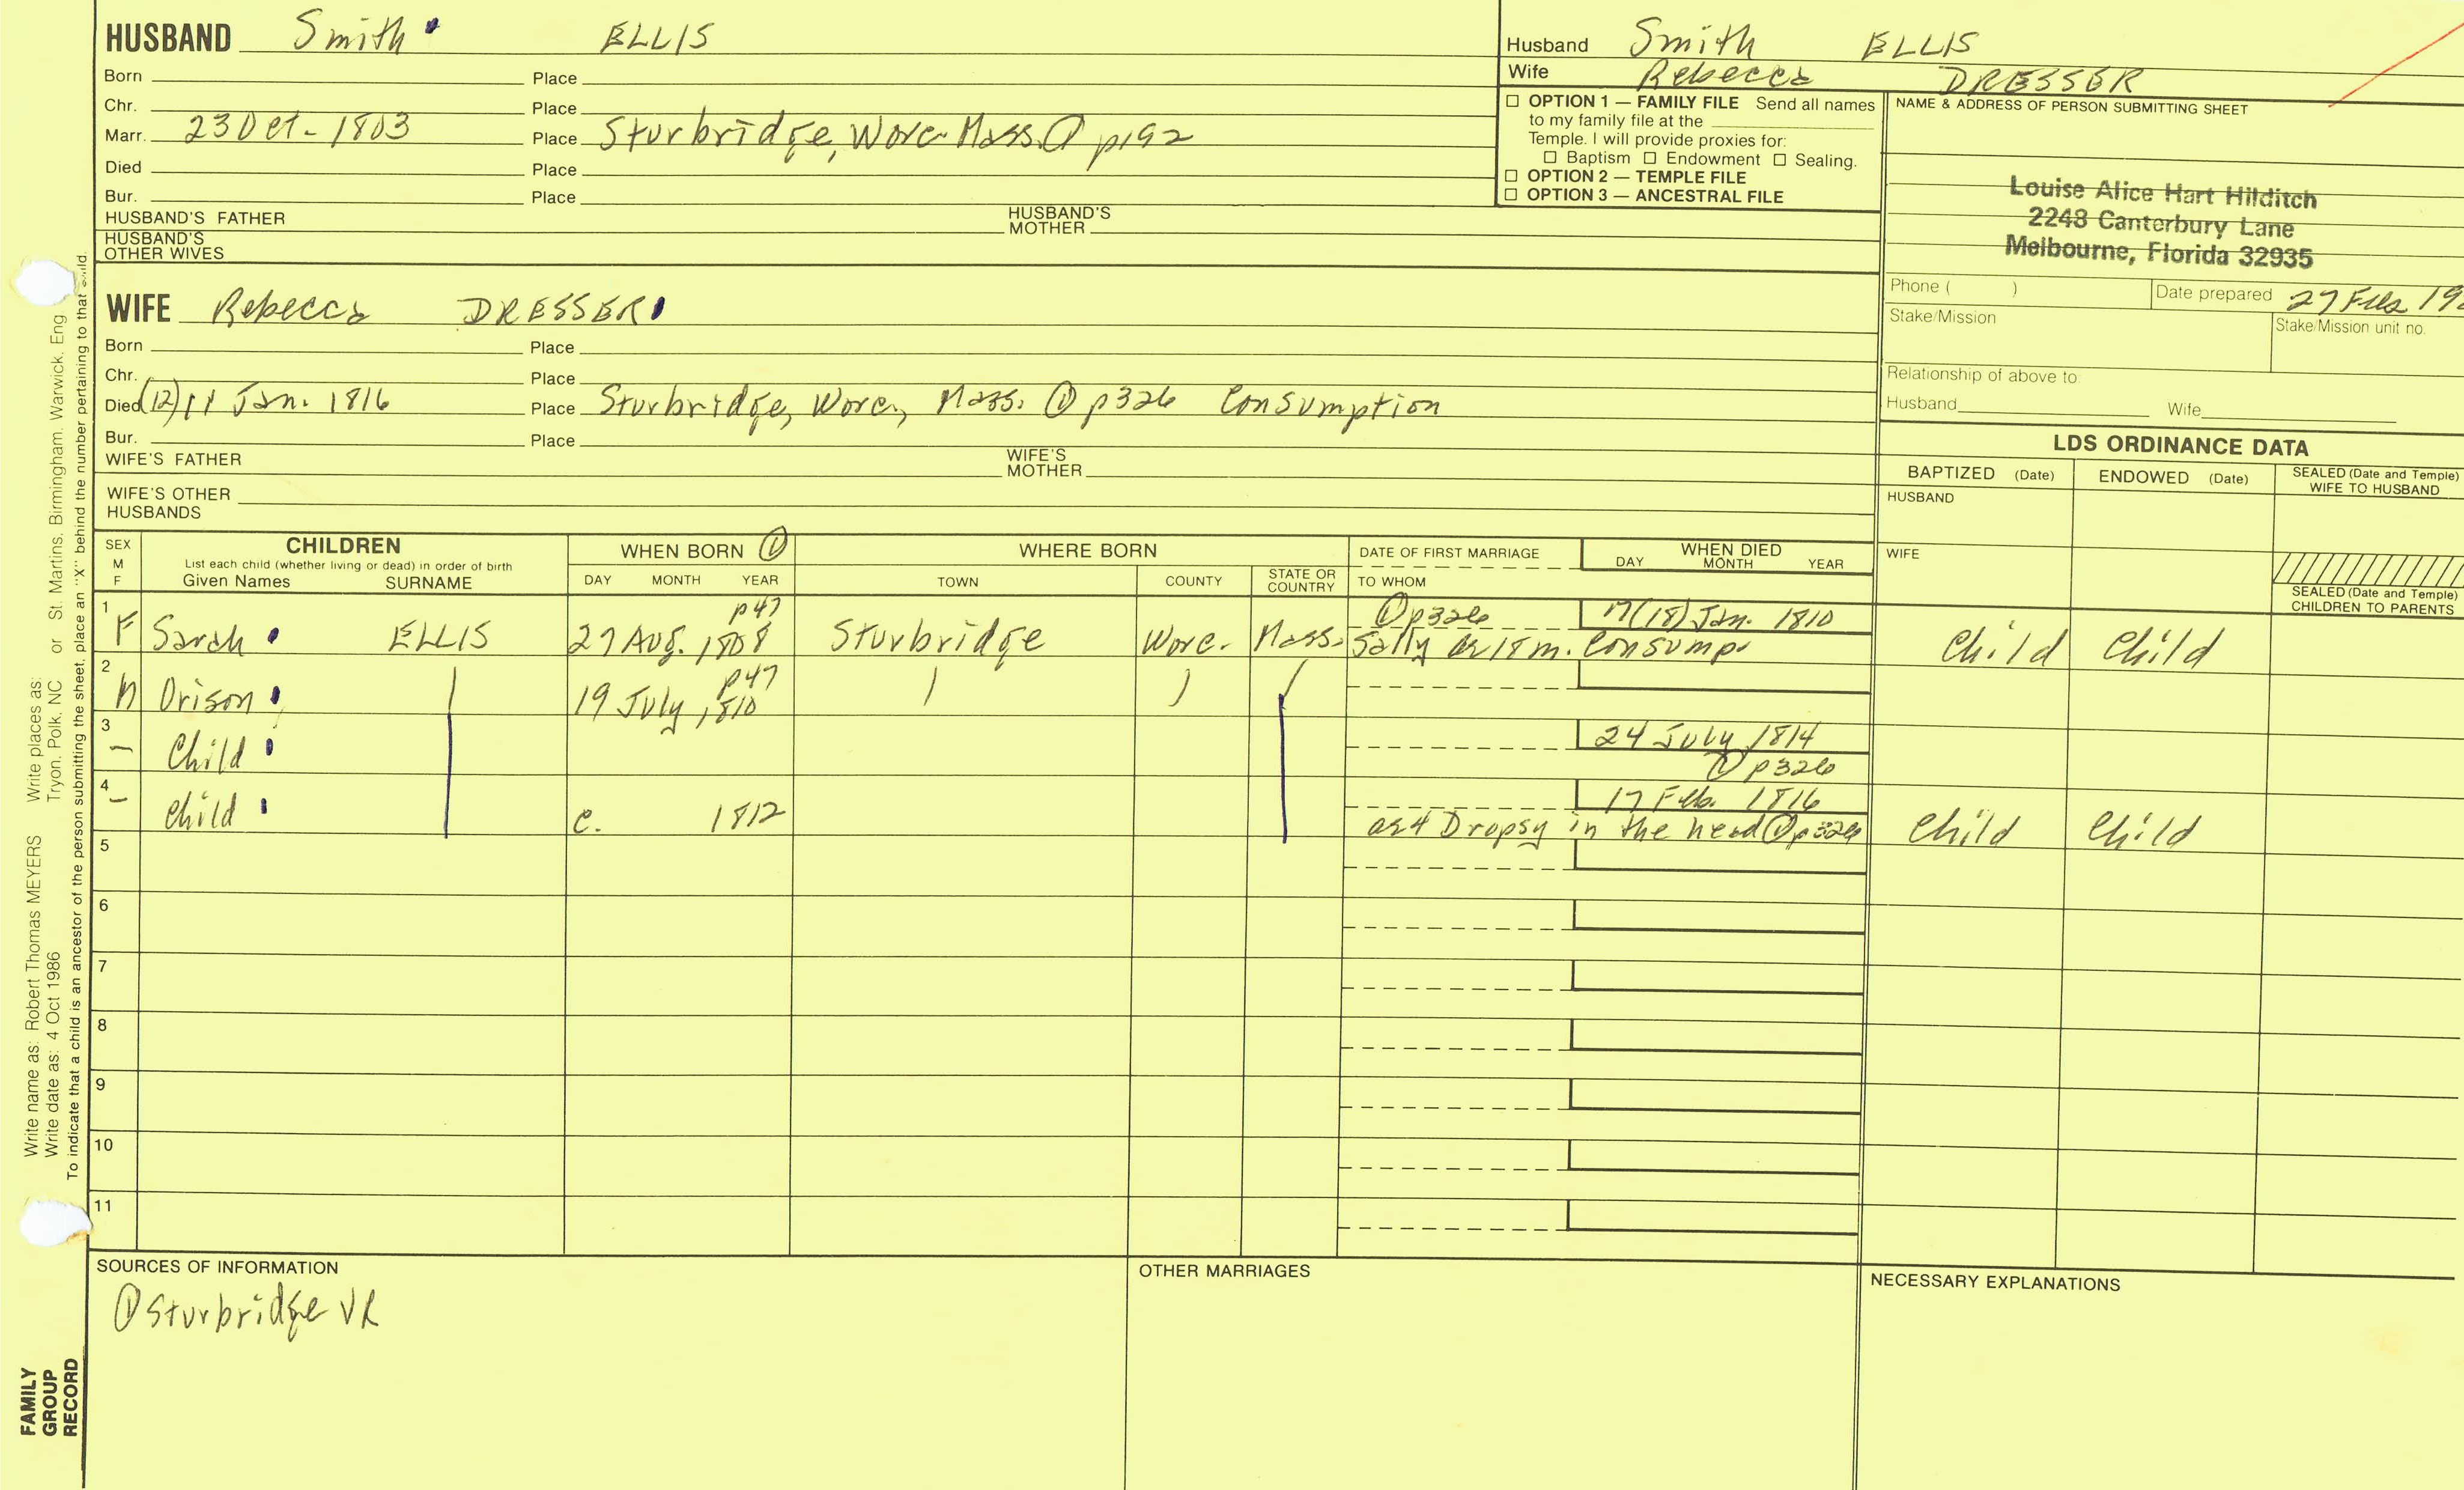 HUSBAND Smith ELLIS
Born Place
Chr. Place
Marr. 23 Oct - 1803 Place Sturbridge, Worc. Mass. ① p192
Died Place
Bur. Place
HUSBAND'S FATHER HUSBAND'S MOTHER
HUSBAND'S OTHER WIVES
WIFE Rebecca DRESSER
Born Place
Chr. Place
Died (12) 11 Jan. 1816 Place Sturbridge, Worc., Mass. ① p326 Consumption
Bur. Place
WIFE'S FATHER WIFE'S MOTHER
WIFE'S OTHER HUSBANDS
Husband Smith ELLIS
Wife Rebecca DRESSER
☐ OPTION 1 — FAMILY FILE Send all names
to my family file at the
Temple. I will provide proxies for:
☐ Baptism ☐ Endowment ☐ Sealing.
☐ OPTION 2 — TEMPLE FILE
☐ OPTION 3 — ANCESTRAL FILE
NAME & ADDRESS OF PERSON SUBMITTING SHEET
Louise Alice Hart Hilditch
2248 Canterbury Lane
Melbourne, Florida 32935
Phone ( ) Date prepared 27 Feb 19
Stake/Mission Stake/Mission unit no.
Relationship of above to:
Husband Wife
LDS ORDINANCE DATA
BAPTIZED (Date) ENDOWED (Date) SEALED (Date and Temple) WIFE TO HUSBAND
HUSBAND
WIFE
SEALED (Date and Temple) CHILDREN TO PARENTS
SEX M F
CHILDREN
List each child (whether living or dead) in order of birth
Given Names SURNAME
WHEN BORN ①
DAY MONTH YEAR
WHERE BORN
TOWN COUNTY STATE OR COUNTRY
DATE OF FIRST MARRIAGE
TO WHOM
WHEN DIED
DAY MONTH YEAR
1 p47 ① p326 17(18) Jan. 1810
F Sarah ELLIS 27 Aug. 1808 Sturbridge Worc. Mass. Sally ae 18 m. Consump. Child Child
2 p47
M Orison 19 July, 1810
3 24 July 1814
– Child ① p326
4 17 Feb. 1816
– Child c. 1812 ae 4 Dropsy in the head ① p326 Child Child
5
6
7
8
9
10
11
SOURCES OF INFORMATION
① Sturbridge VR
OTHER MARRIAGES
NECESSARY EXPLANATIONS
Write name as: Robert Thomas MEYERS Write places as: St. Martins, Birmingham, Warwick, Eng
Write date as: 4 Oct 1986 Tryon, Polk, NC or
To indicate that a child is an ancestor of the person submitting the sheet, place an "X" behind the number pertaining to that child.
FAMILY
GROUP
RECORD